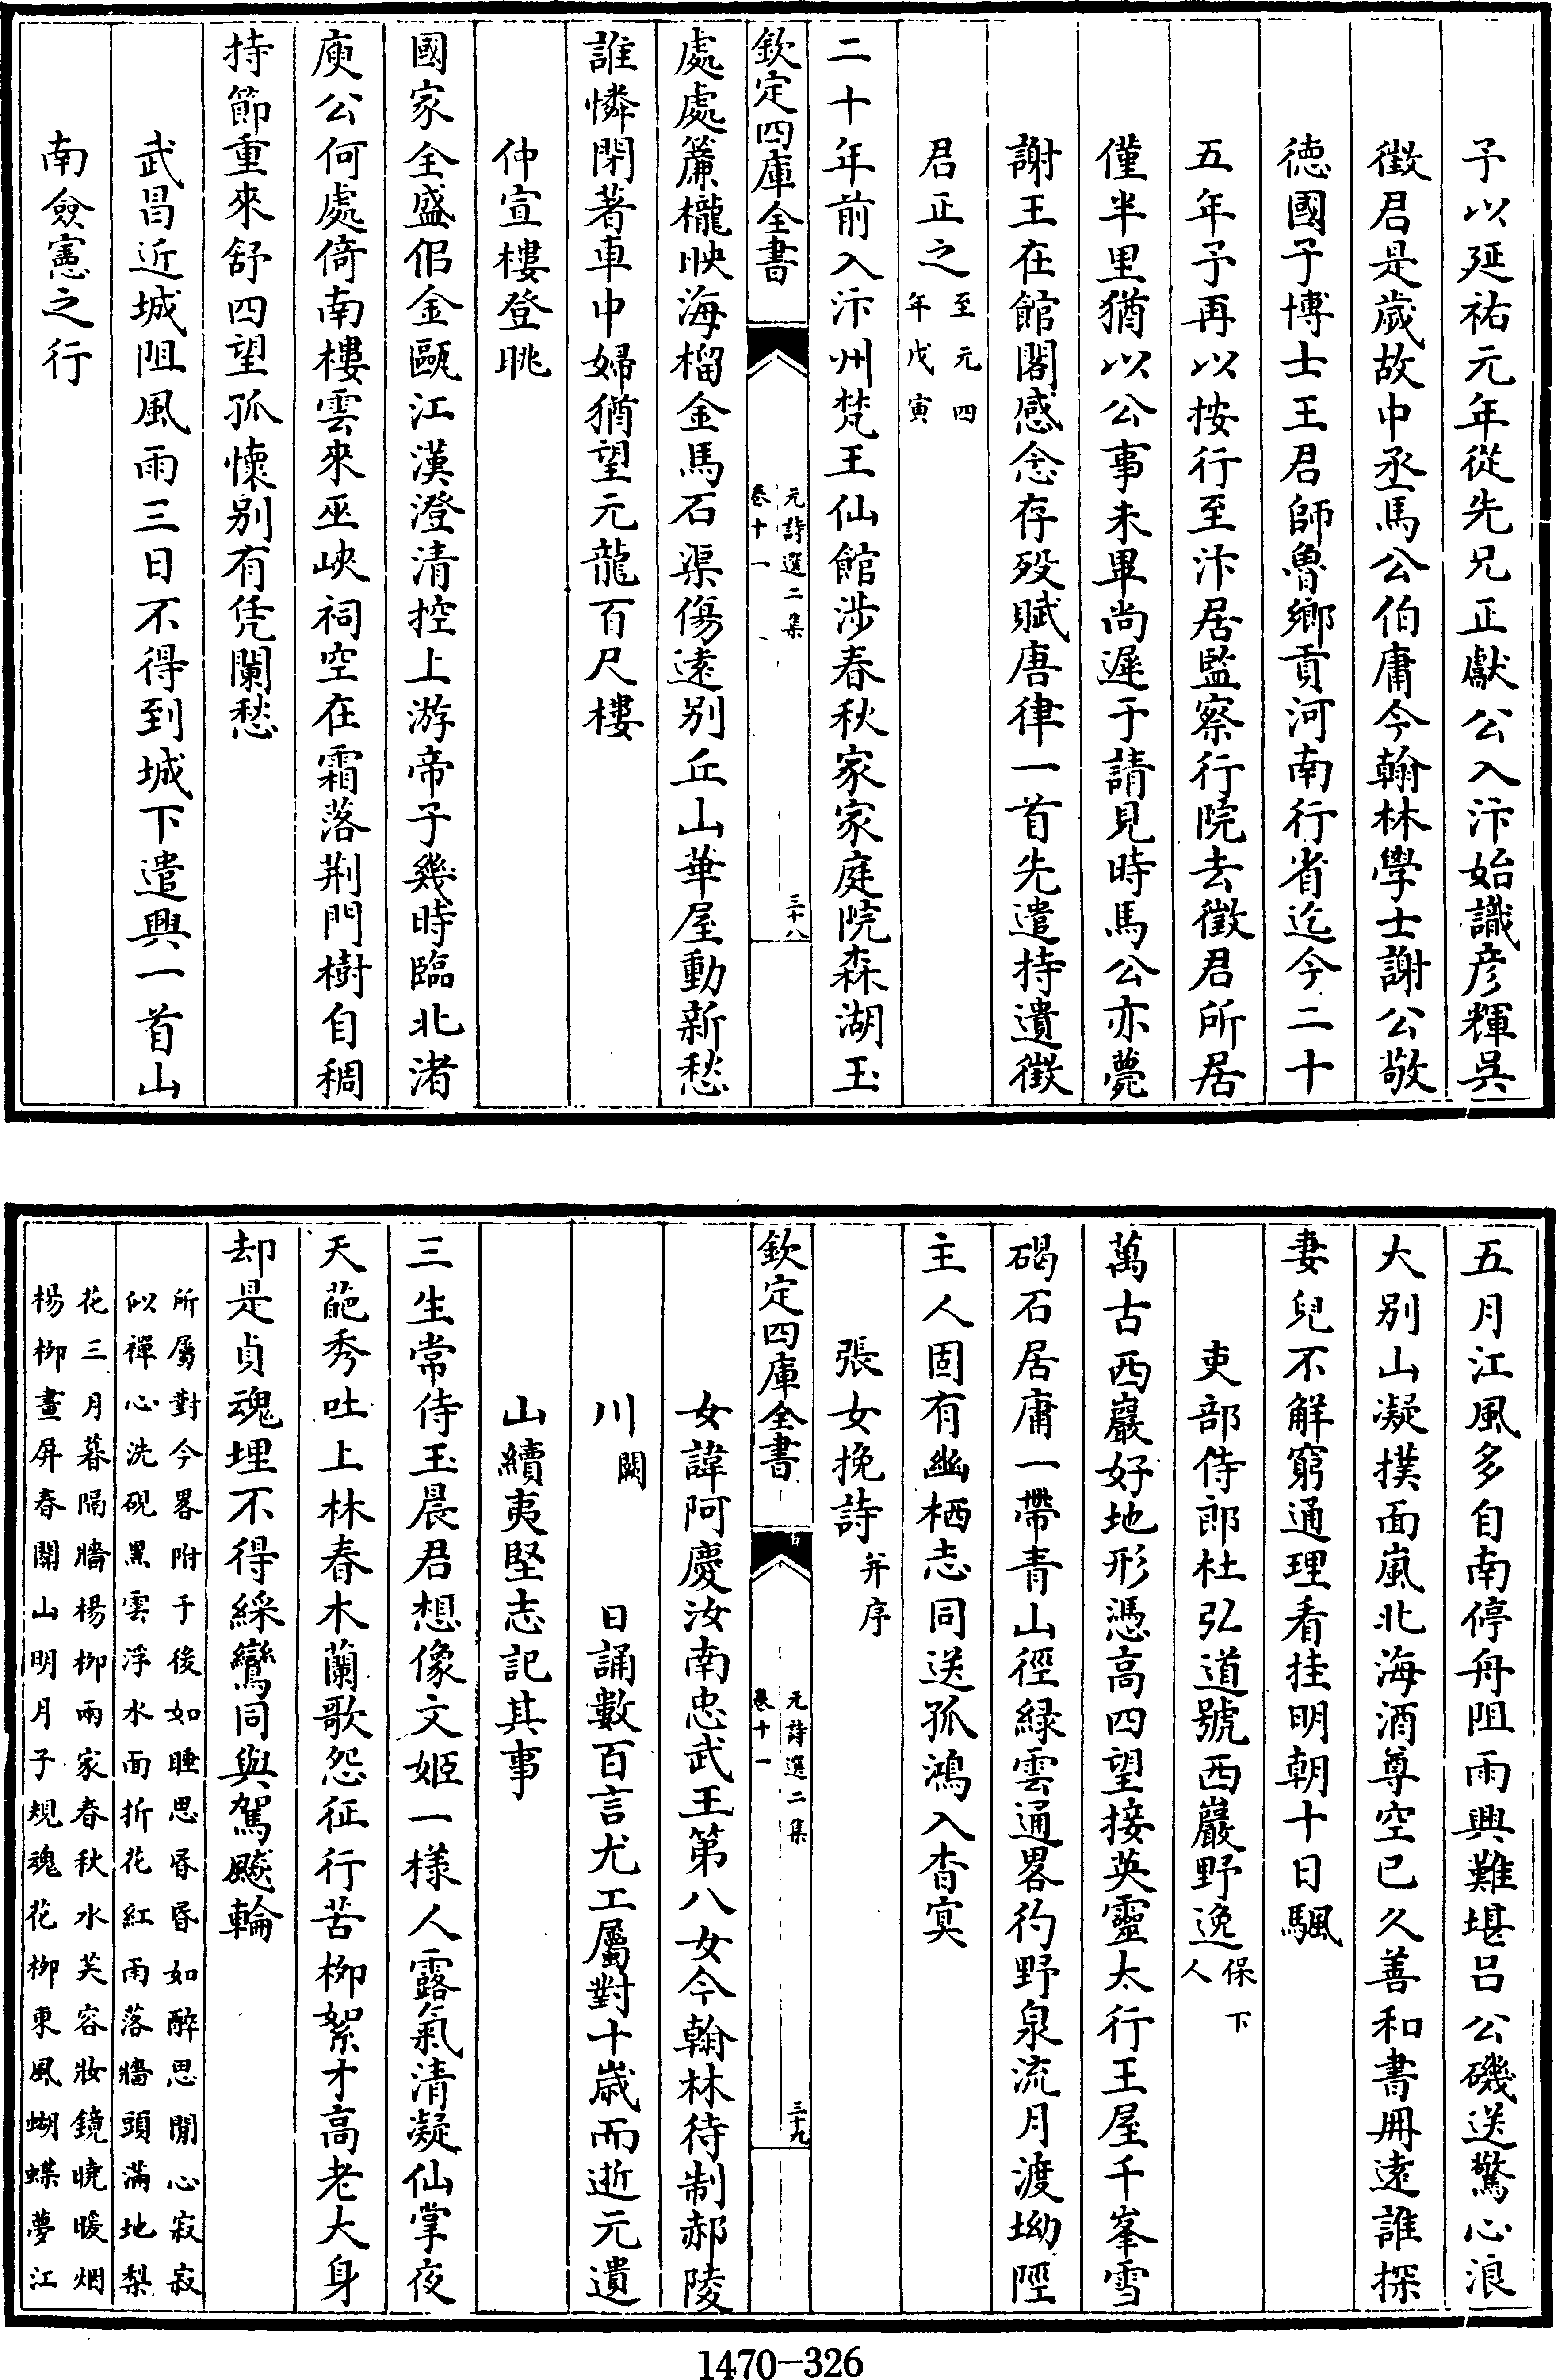 予以延祐元年從先兄正獻公入汴始識彦輝吳
徵君是歲故中丞馬公伯庸今翰林學士謝公敬
徳國子博士王君師魯鄉貢河南行省迄今二十
五年予再以按行至汴居監察行院去徵君所居
僅半里猶以公事未畢尚遲于請見時馬公亦薨
謝王在館閣感念存歿賦唐律一首先遣持遺徵
君正之至元四年戊寅
二十年前入汴州梵王仙館涉春秋家家庭院森湖玉
欽定四庫全書
元詩選二集
卷十一
三十八
處處簾櫳映海榴金馬石渠傷逺別丘山華屋動新愁
誰憐閉著車中婦猶望元龍百尺樓
仲宣樓登眺
國家全盛侣金甌江漢澄清控上游帝子幾時臨北渚
庾公何處倚南樓雲來巫峽祠空在霜落荆門樹自稠
持節重來舒四望孤懷别有凭闌愁
武昌近城阻風雨三日不得到城下遣興一首山
南僉憲之行
五月江風多自南停舟阻雨興難堪吕公磯送驚心浪
大别山凝撲面嵐北海酒尊空已久善和書冊逺誰探
妻兒不解窮通理看挂明朝十日颿
吏部侍郎杜弘道號西巖野逸保下人
萬古西巖好地形憑高四望接英靈太行王屋千峯雪
碣石居庸一帶青山徑緑雲通畧彴野泉流月渡坳陘
主人固有幽栖志同送孤鴻入杳冥
張女挽詩并序
欽定四庫全書
元詩選二集
卷十一
三十九
女諱阿慶汝南忠武王第八女今翰林待制郝陵
川闕　　日誦數百言尤工屬對十歳而逝元遺
山續夷堅志記其事
三生常侍玉晨君想像文姬一様人露氣清凝仙掌夜
天葩秀吐上林春木蘭歌怨征行苦栁絮才高老大身
却是貞魂埋不得綵鸞同與駕飈輪
所屬對今畧附于後如睡思昏昏如醉思閒心寂寂
似禪心洗硯黑雲浮水面折花紅雨落牆頭滿地梨
花三月暮隔牆楊栁兩家春秋水芙容妝鏡曉暖烟
楊栁畫屏春關山明月子規魂花栁東風蝴蝶夢江
1470—326